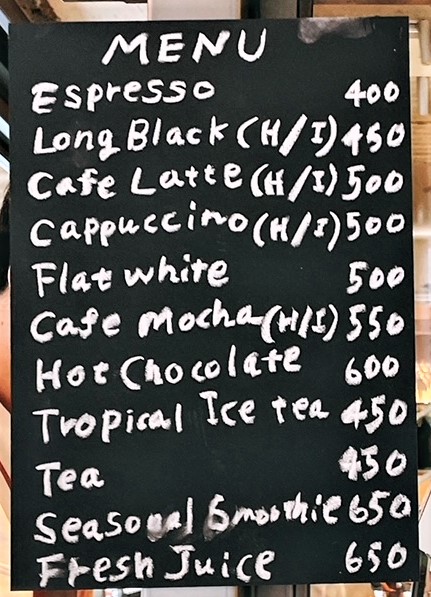 MENU
Espresso 400
Long Black (H/I) 450
Cafe Latte (H/I) 500
Cappuccino (H/I) 500
Flat white 500
Cafe Mocha (H/I) 550
Hot Chocolate 600
Tropical Ice tea 450
Tea 450
Seasonal Smoothie 650
Fresh Juice 650